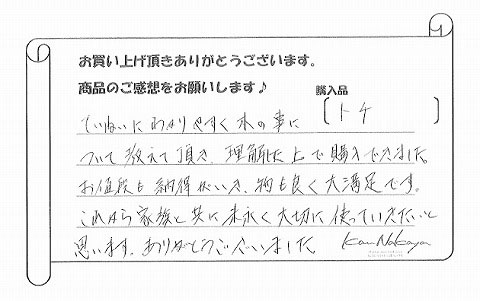 お買い上げ頂きありがとうございます。
商品のご感想をお願いします♪
購入品
〔トチ 〕
ていねいにわかりやすく木の事に
ついて教えて頂き、理解した上で購入できました。
お値段も納得がいき、物も良く大満足です。
これから家族と共に末永く大切に使っていきたいと
思います。ありがとうございました。